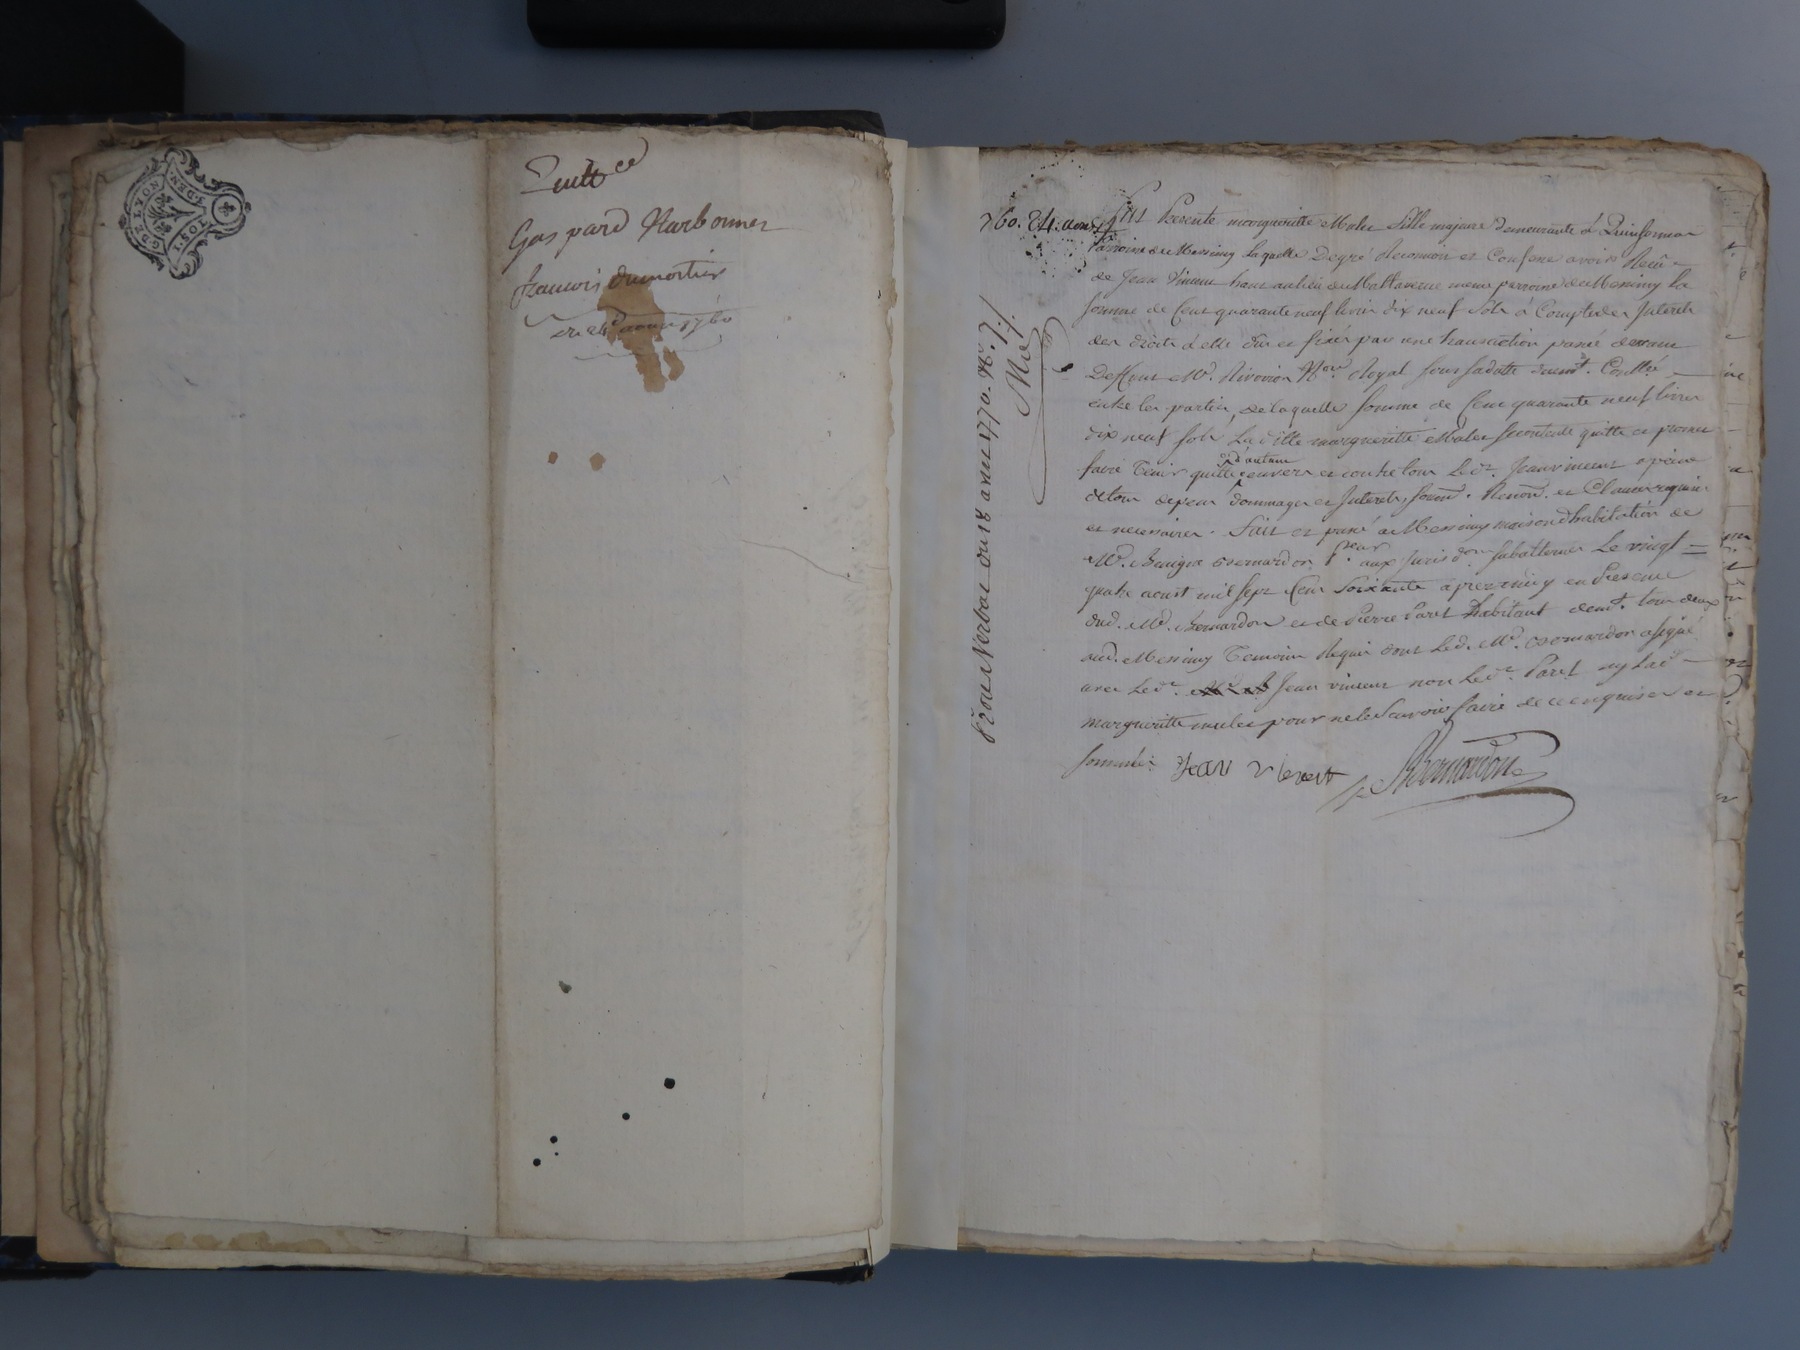 GDE LYON
Quittce
Gaspard Narbonner
francois dumortier
du 24e aoust 1760
760. 24. aoust
Prou. Verbal du 18 avril 1770. Ne. 7./.
fut Presente margueritte Mulet fille majeure demeurante à Quinsormar
Parroisse de Messimy laquelle de gré Reconnoit et Confesse avoir Receû
de Jean Vincent hant au lieu de Mallataverne meme parroisse de Messimy la
somme de Cent quarante neuf livres dix neuf sols à Compte des Interets
des droits à elle dus et fixés par une transaction passée devant
Me. Nore Royal sous sa datte Conllé
entre les parties, de laquelle somme de Cent quarante neuf livres
dix neuf sols la ditte margueritte Mulet se contente quitte et promet
faire Tenir quitte envers et contre tous led. Jean vincent a peine
d'autant
de tous depens dommages et Interets soumd. Renond. et Clauses requises
et necessaires. Fait et passé a Messimy maison d'habitation de
Me. Benigne Bernardon Preur aux Jurisdons subalternes le vingt
quatre aoust mil sept Cent soixante après midy en Presence
dud. Me. Bernardon et de Pierre Paret habitant tous deux
aud. Messimy Temoins Requis dont led. Me. Bernardon a signé
avec led. Jean vincent non led. Paret ny lad.
margueritte mulet pour ne le scavoir faire de ce enquises et
sommées Jean Vincent Bernardon